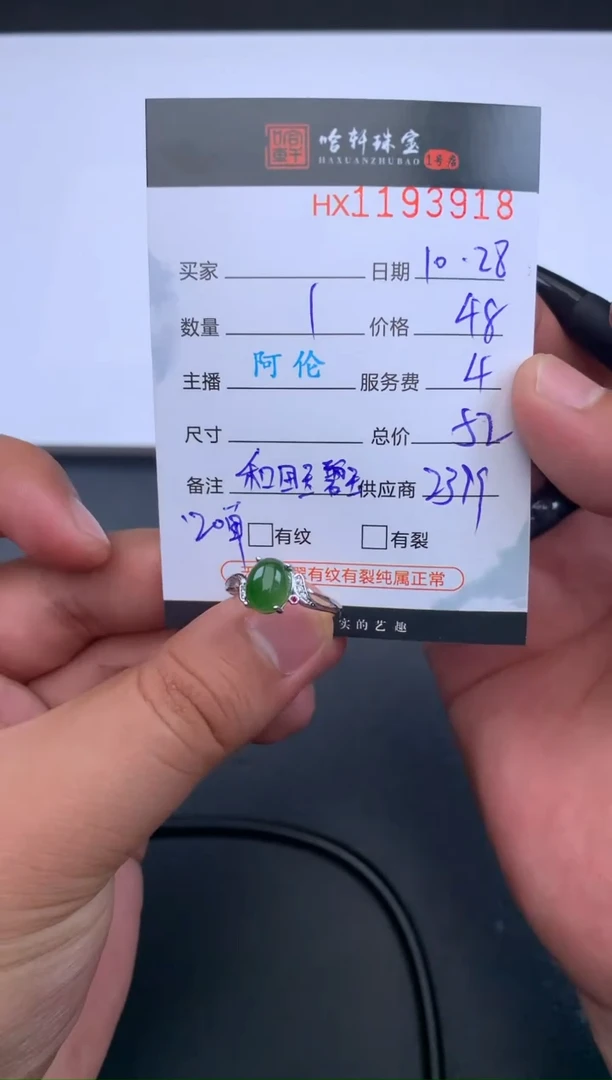 哈轩珠宝
HAXUANZHUBAO 1号店
HX1193918
买家 日期 10.28
数量 1 价格 48
主播 阿伦 服务费 4
尺寸 总价 52
备注 和田玉碧玉 供应商
有纹 有裂
有纹有裂纯属正常
实的艺趣